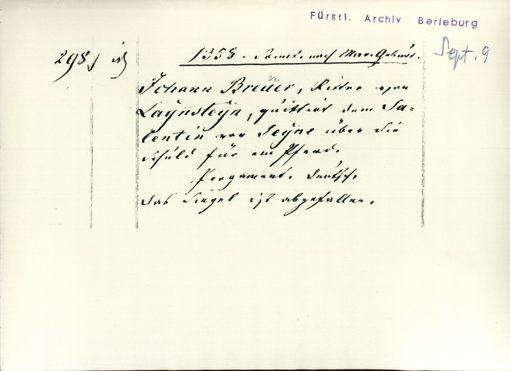 Fürstl. Archiv Berleburg
Sept. 9
298
1358. Samst. nach Mar. Geburt.
Johann Breder, Ritter von
Laynsteyn, quittirt dem Sa-
lentin von Seyne über die
Schuld für ein Pferd.
Pergament. Deutsch.
Das Siegel ist abgefallen.